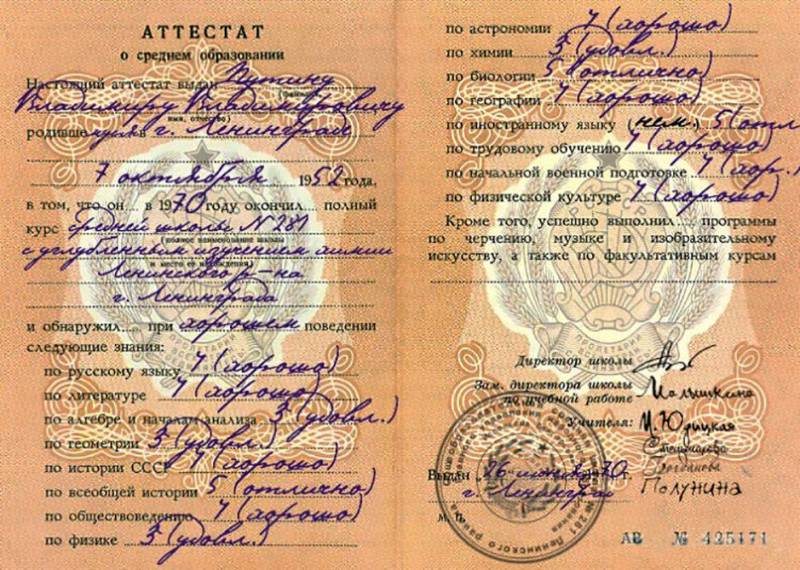 АТТЕСТАТ
о среднем образовании
Настоящий аттестат выдан Путину
(фамилия)
Владимиру Владимировичу
имя, отчество)
родившемуся в г. Ленинграде
7 октября 1952 года,
в том, что он в 1970 году окончил полный
курс средней школы № 281
(полное наименование школы
с углубленным изучением химии
и место ее нахождения)
Ленинского р-на
г. Ленинграда
и обнаружил при хорошем поведении
следующие знания:
по русскому языку 4 (хорошо)
по литературе 4 (хорошо)
по алгебре и началам анализа 3 (удовл.)
по геометрии 3 (удовл.)
по истории СССР 4 (хорошо)
по всеобщей истории 5 (отлично)
по обществоведению 4 (хорошо)
по физике 3 (удовл.)
по астрономии 4 (хорошо)
по химии 3 (удовл.)
по биологии 5 (отлично)
по географии 4 (хорошо)
по иностранному языку (нем.) 5 (отл
по трудовому обучению 4 (хорошо)
по начальной военной подготовке 4 (хор.)
по физической культуре 4 (хорошо)
Кроме того, успешно выполнил программы
по черчению, музыке и изобразительному
искусству, а также по факультативным курсам
Директор школы
Зам. директора школы
по учебной работе
Учителя:
Полунина
Выдан 26 июня 1970 г.
г. Ленинград
М. П.
АВ № 425171